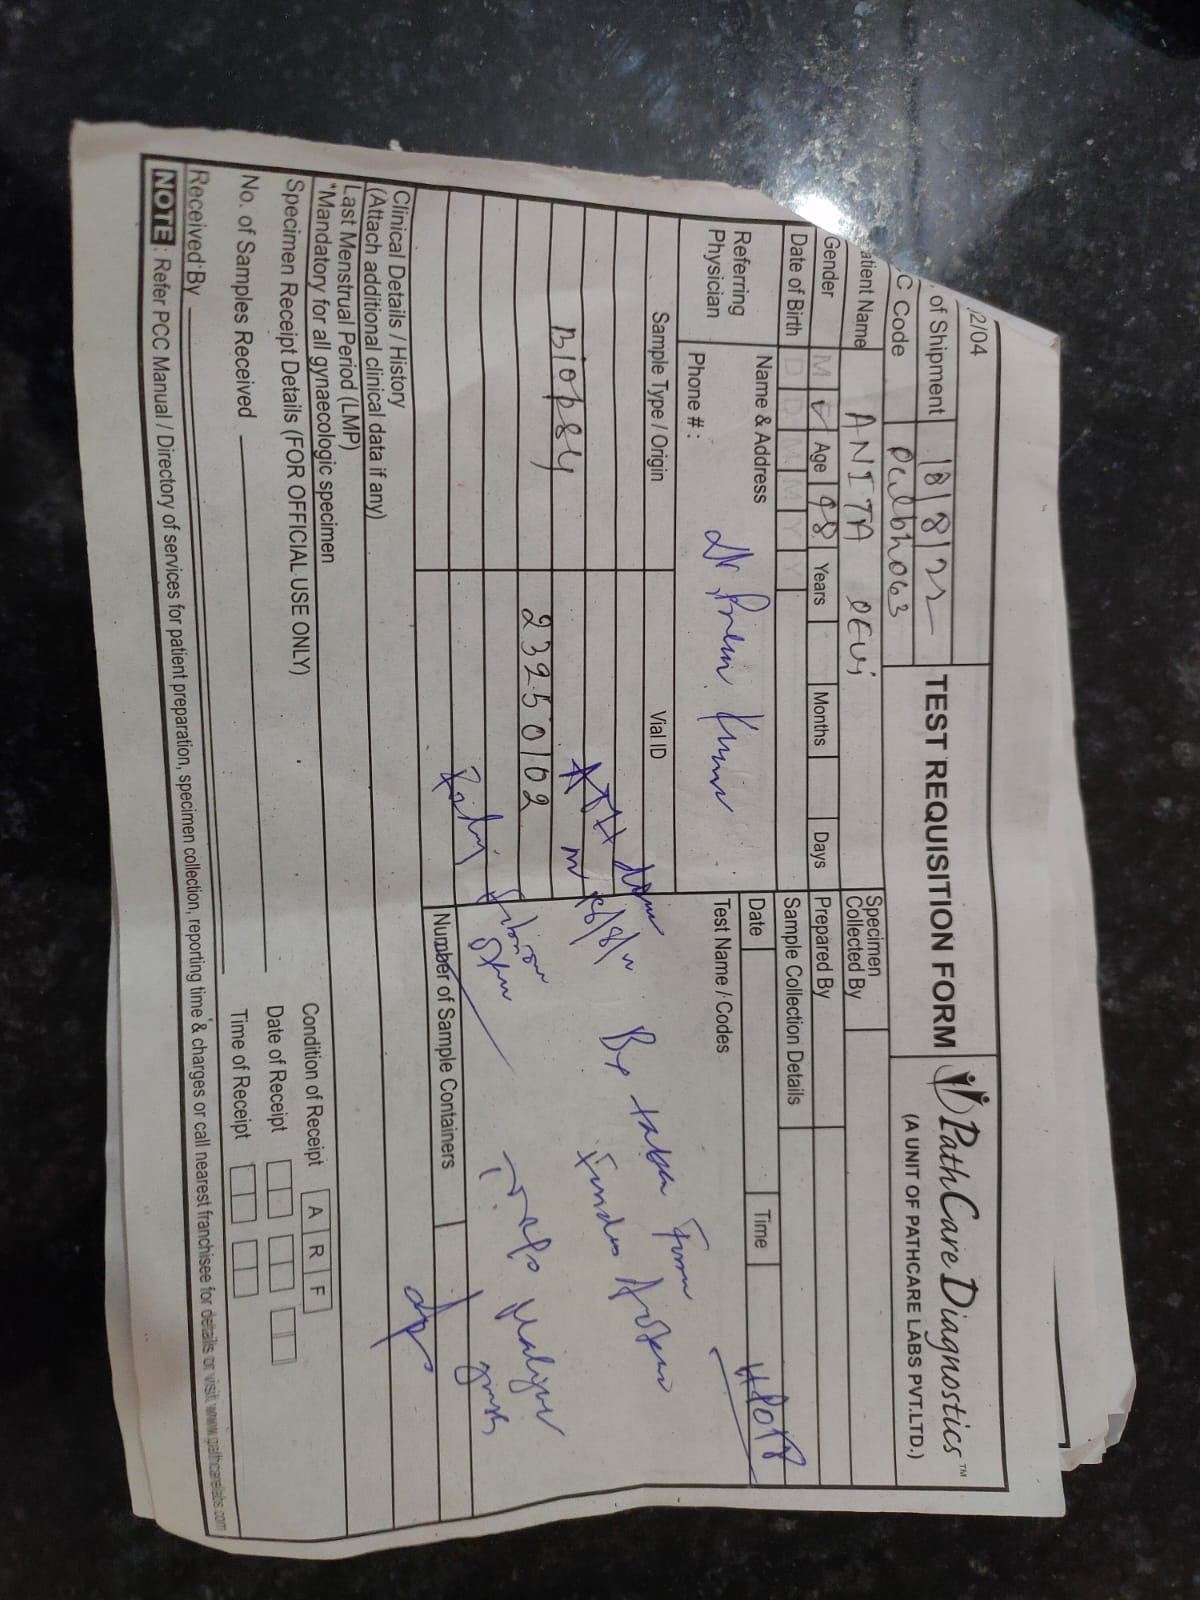 2/04
of Shipment 18/8/22
TEST REQUISITION FORM
PathCare Diagnostics™
(A UNIT OF PATHCARE LABS PVT.LTD.)
C Code
atient Name ANITA DEVi
Specimen
Collected By
Gender M Age Years Months Days
Prepared By
Date of Birth D D M M Y Y
Sample Collection Details
Referring
Physician
Name & Address
Dr Prem Kumar
Phone # :
Date Time
Test Name / Codes
Sample Type / Origin Vial ID
Biopsy
23250102
Bx taken From
Number of Sample Containers
Clinical Details / History
(Attach additional clinical data if any)
Last Menstrual Period (LMP)
*Mandatory for all gynaecologic specimen
Specimen Receipt Details (FOR OFFICIAL USE ONLY)
Condition of Receipt A R F
No. of Samples Received
Date of Receipt
Received By
Time of Receipt
NOTE : Refer PCC Manual / Directory of services for patient preparation, specimen collection, reporting time & charges or call nearest franchisee for details or visit www.pathcarelabs.com